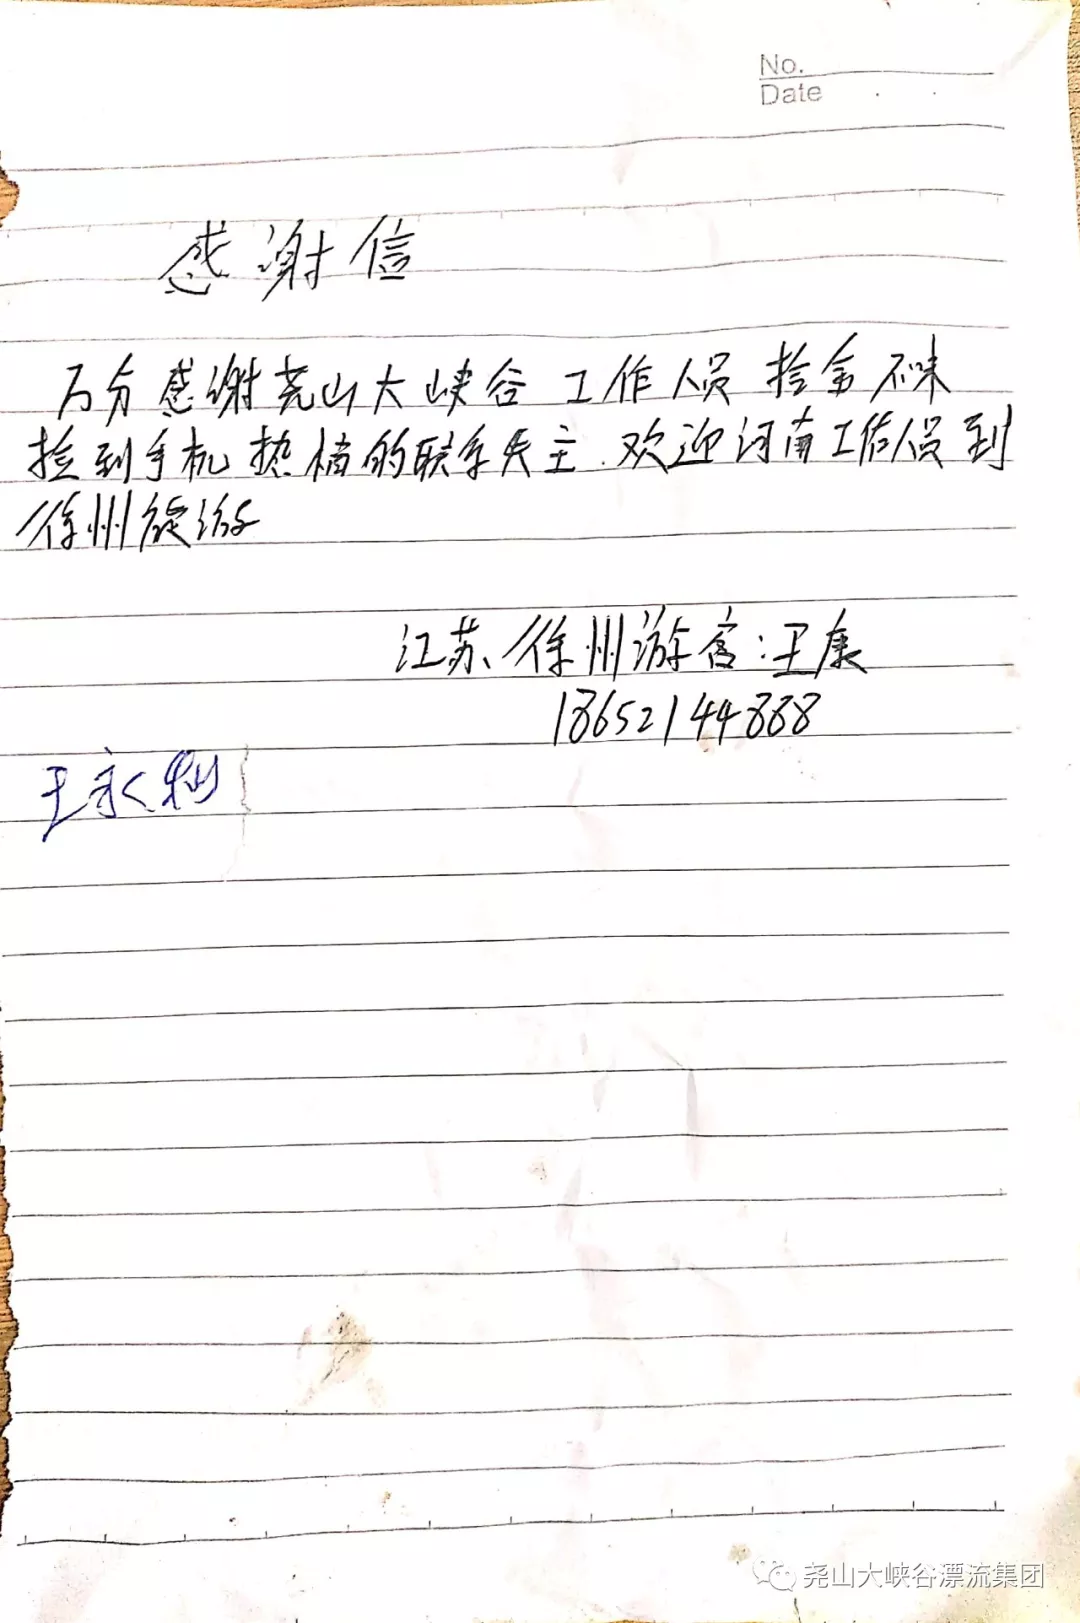 No.
Date
感谢信
万分感谢尧山大峡谷工作人员拾金不昧
捡到手机热情的联系失主.欢迎河南工作人员到
徐州旅游
江苏徐州游客:王康
18652144888
王永
尧山大峡谷漂流集团